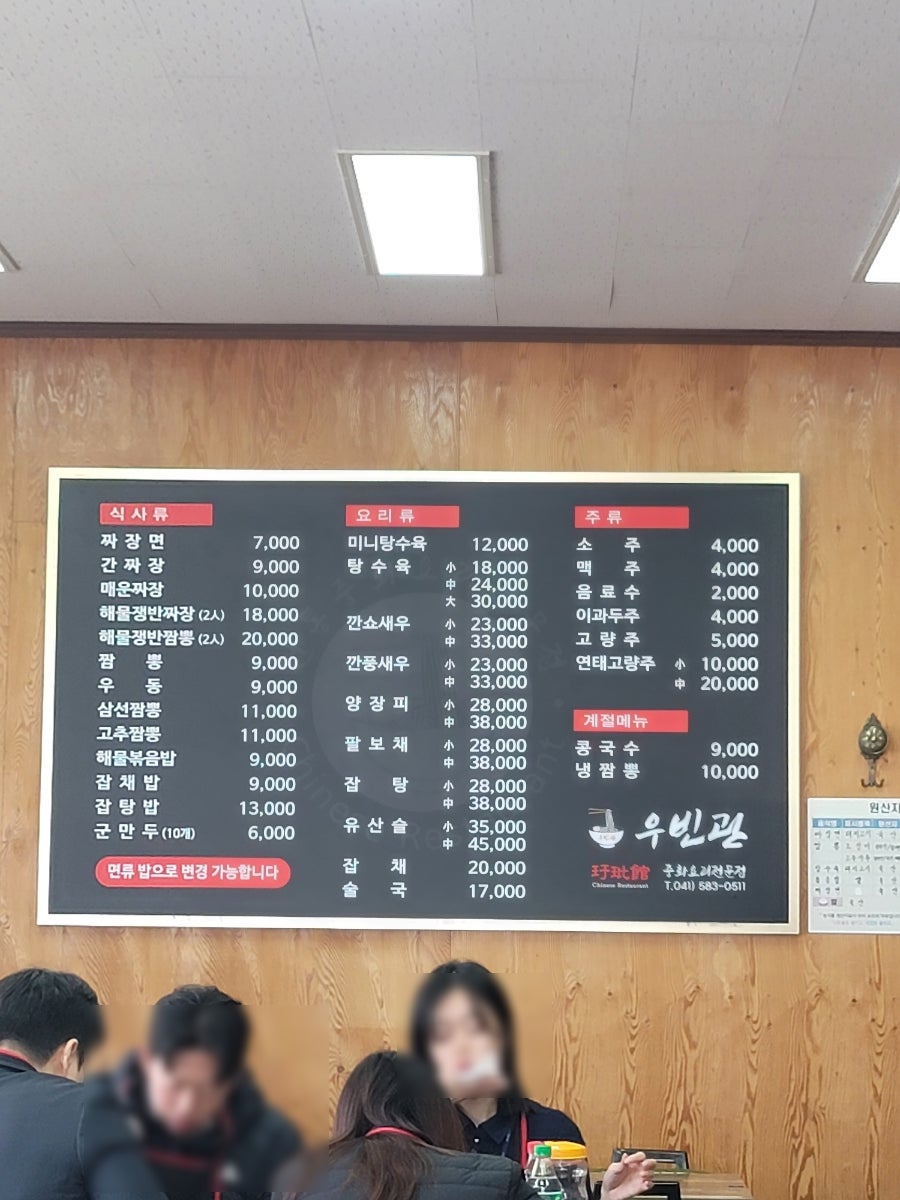 식사류
짜장면 7,000
간짜장 9,000
매운짜장 10,000
해물쟁반짜장 (2人) 18,000
해물쟁반짬뽕 (2人) 20,000
짬뽕 9,000
우동 9,000
삼선짬뽕 11,000
고추짬뽕 11,000
해물볶음밥 9,000
잡채밥 9,000
잡탕밥 13,000
군만두 (10개) 6,000
면류 밥으로 변경 가능합니다
요리류
미니탕수육 12,000
탕수육 小 18,000
中 24,000
大 30,000
깐쇼새우 小 23,000
中 33,000
깐풍새우 小 23,000
中 33,000
양장피 小 28,000
中 38,000
팔보채 小 28,000
中 38,000
잡탕 小 28,000
中 38,000
유산슬 小 35,000
中 45,000
잡채 20,000
술국 17,000
주류
소주 4,000
맥주 4,000
음료수 2,000
이과두주 4,000
고량주 5,000
연태고량주 小 10,000
中 20,000
계절메뉴
콩국수 9,000
냉짬뽕 10,000
우빈관
Chinese Restaurant
중화요리전문점
T.041) 583-0511
원산지